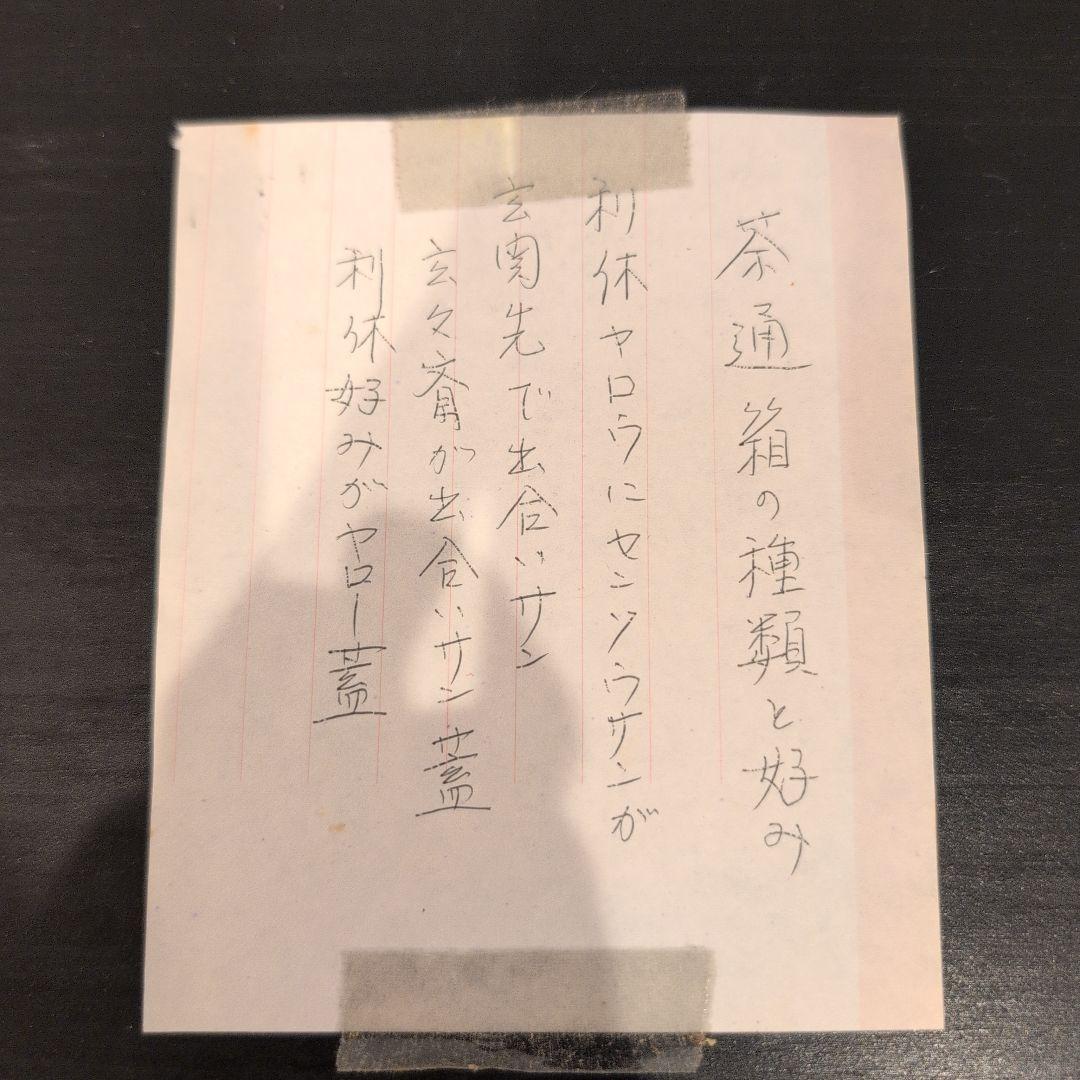 茶通箱の種類と好み
利休ヤロウにセンソウサンが
玄関先で出合いサン
玄々斎が出合いサン蓋
利休好みがヤロー蓋